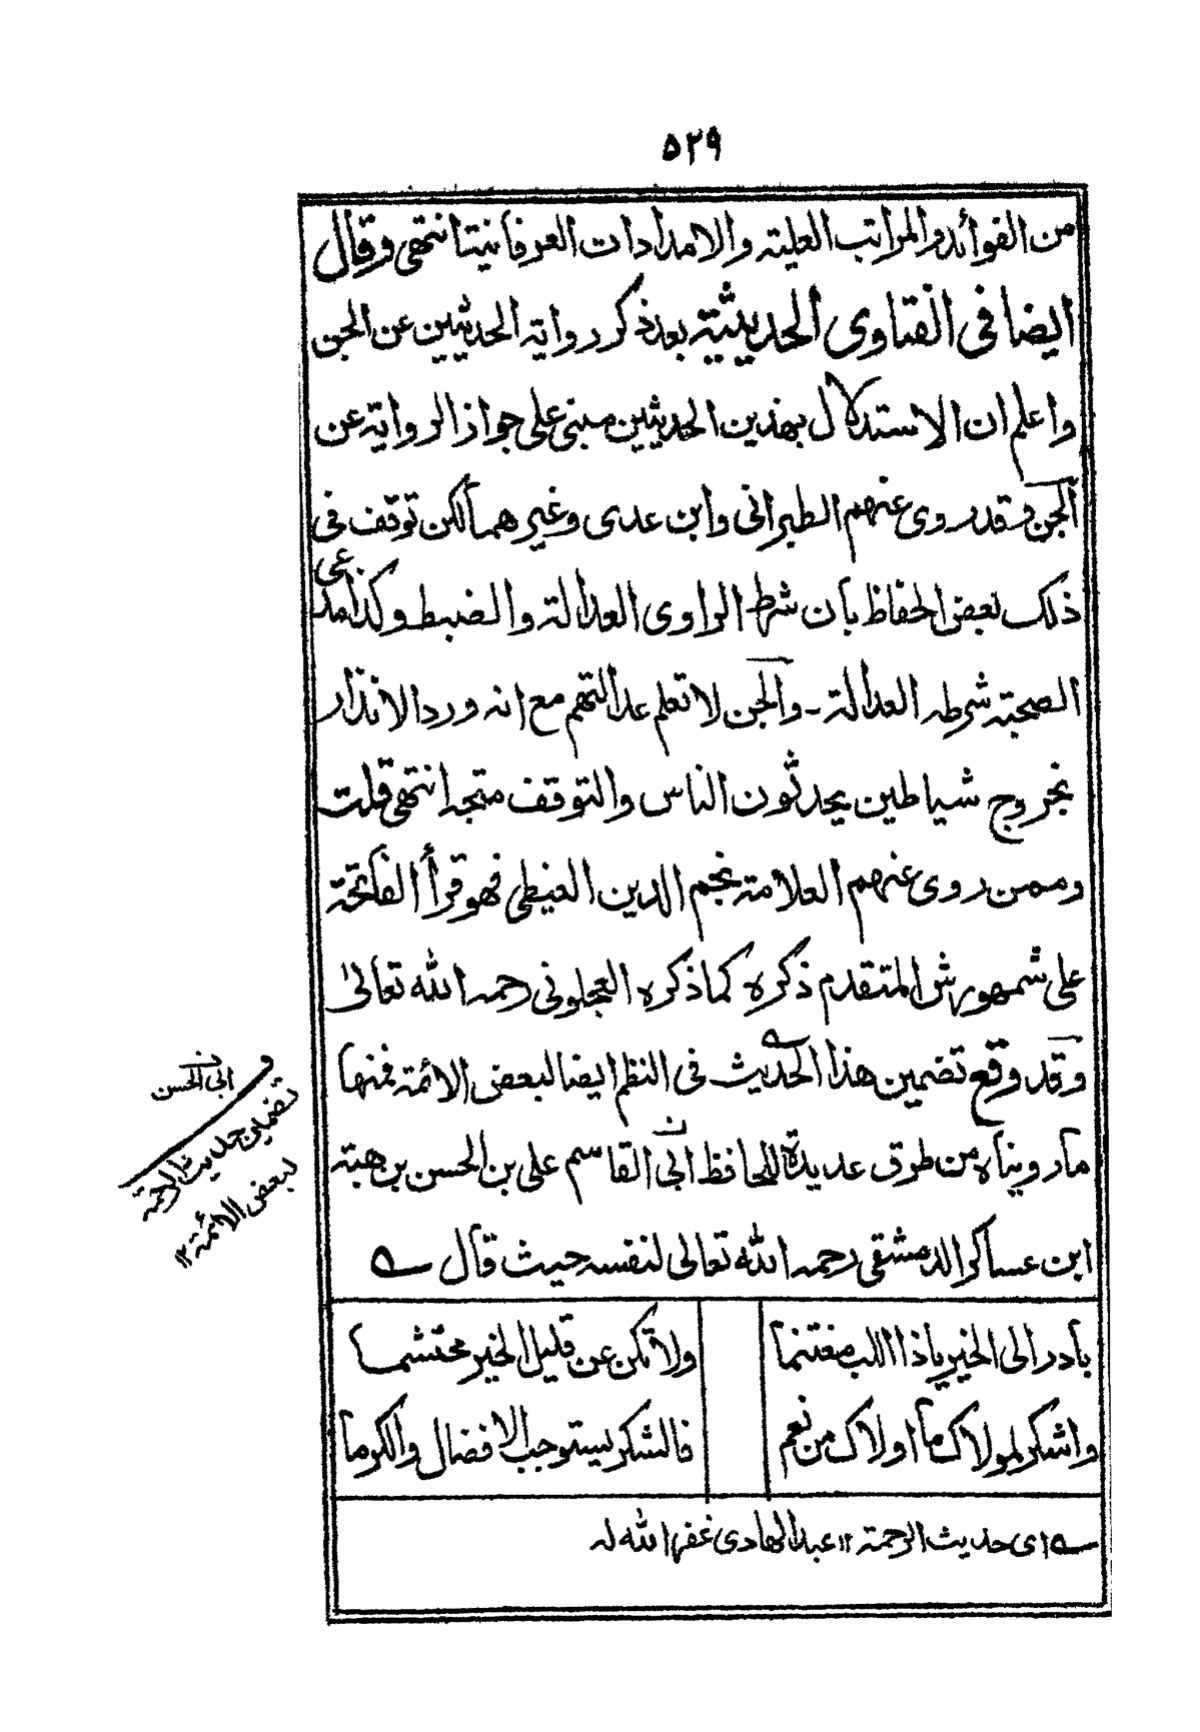 ٥٢٩
من الفوائد والمراتب العلية والامدادات العرفانية انتهى وقال
ايضا فى الفتاوى الحديثية بعد ذكر رواية الحديثين عن الجن
واعلم ان الاستدلال بهذين الحديثين مبنى على جواز الرواية عن
الجن وقد روى عنهم الطبرانى وابن عدى وغيرهما لكن توقف فى
ذلك بعض الحفاظ بان شرط الراوى العدالة والضبط وكذا مدعى
الصحبة شرطه العدالة - والجن لا تعلم عدالتهم مع انه ورد الانذار
بخروج شياطين يحدثون الناس والتوقف متجه انتهى قلت
وممن روى عنهم العلامة نجم الدين الغيطى فهو قرأ الفاتحة
على شمهورش المتقدم ذكره كما ذكره العجلونى رحمه الله تعالىٰ
وقد وقع تضمين هذا الحديث فى النظم ايضا لبعض الائمة فمنها
ما رويناه من طرق عديدة للحافظ ابى القاسم على بن الحسن بن هبة
ابن عساكر الدمشقى رحمه الله تعالى لنفسه حيث قال
بادر الى الخير ياذا اللب مغتنما ولا تكن عن قليل الخير محتشما
واشكر لمولاك ما اولاك من نعم فالشكر يستوجب الافضال والكرما
اى حديث الرحمة ١٢ عبد الهادى غفر الله له
ابى الحسن
تضمين حديث الرحمة
لبعض الائمة ١٢